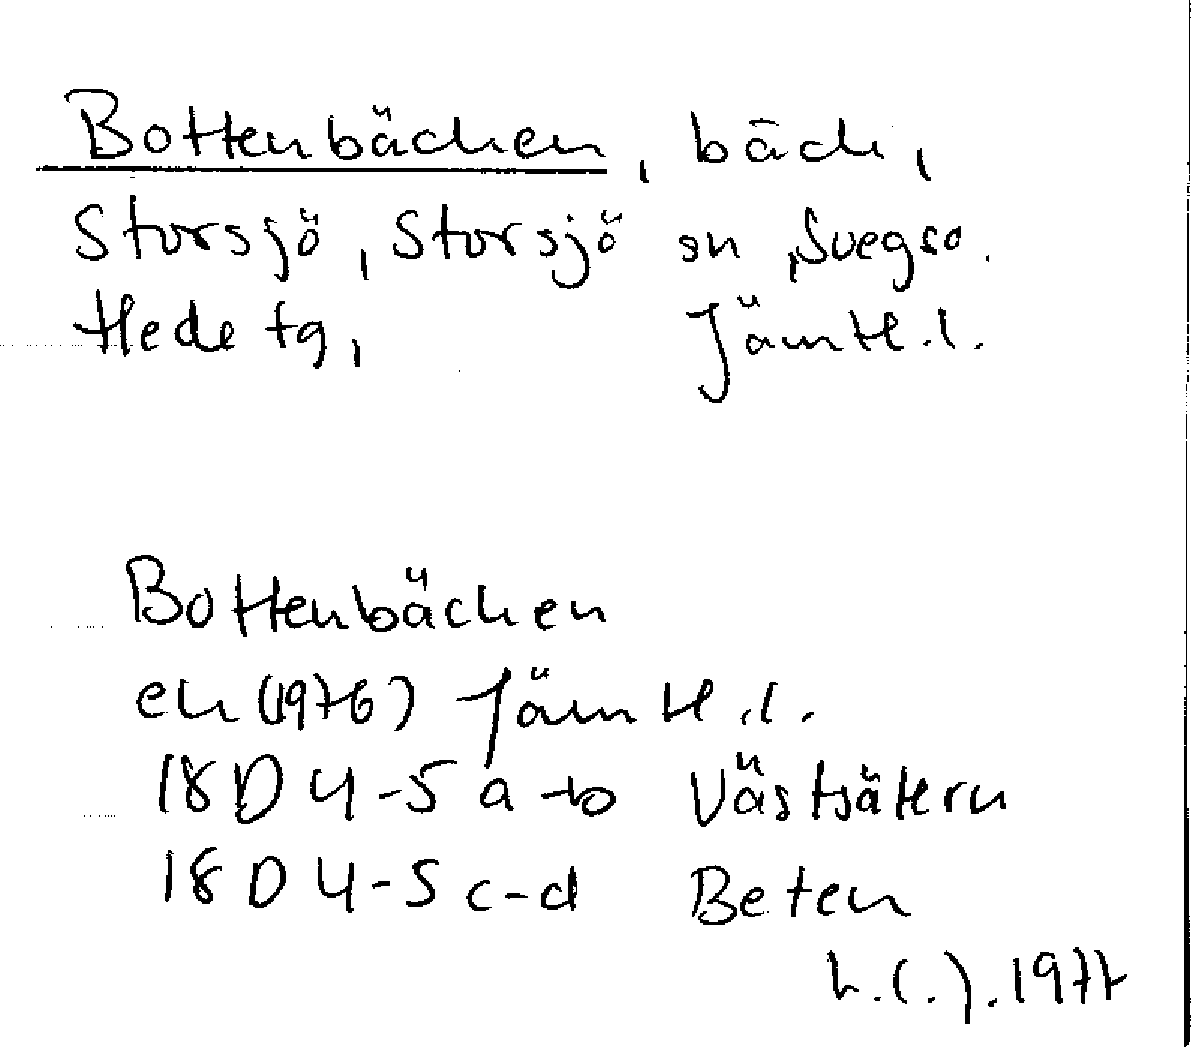 Bottenbäcken, bäck,
Storsjö, Storsjö sn, Svegs to.
Hede tg, Jämtl.l.
Bottenbäcken
ek (1976) Jämtl.l.
18D 4-5 a-b Västsätern
18D 4-5 c-d Beten
1977